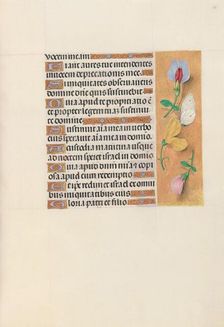 vocem meam
Fiant aures tue intendentes
in vocem deprecationis mee
Si iniquitates observaveris
domine domine quis sustinebit
Quia apud te propitiatio est
et propter legem tuam sustinui
te domine
Sustinuit anima mea in verbo
eius speravit anima mea in domino
A custodia matutina usque
ad noctem speret israel in domino
Quia apud dominum mia et
copiosa apud eum redemptio
Et ipse redimet israel ex omnibus
iniquitatibus eius
Gloria patri et filio